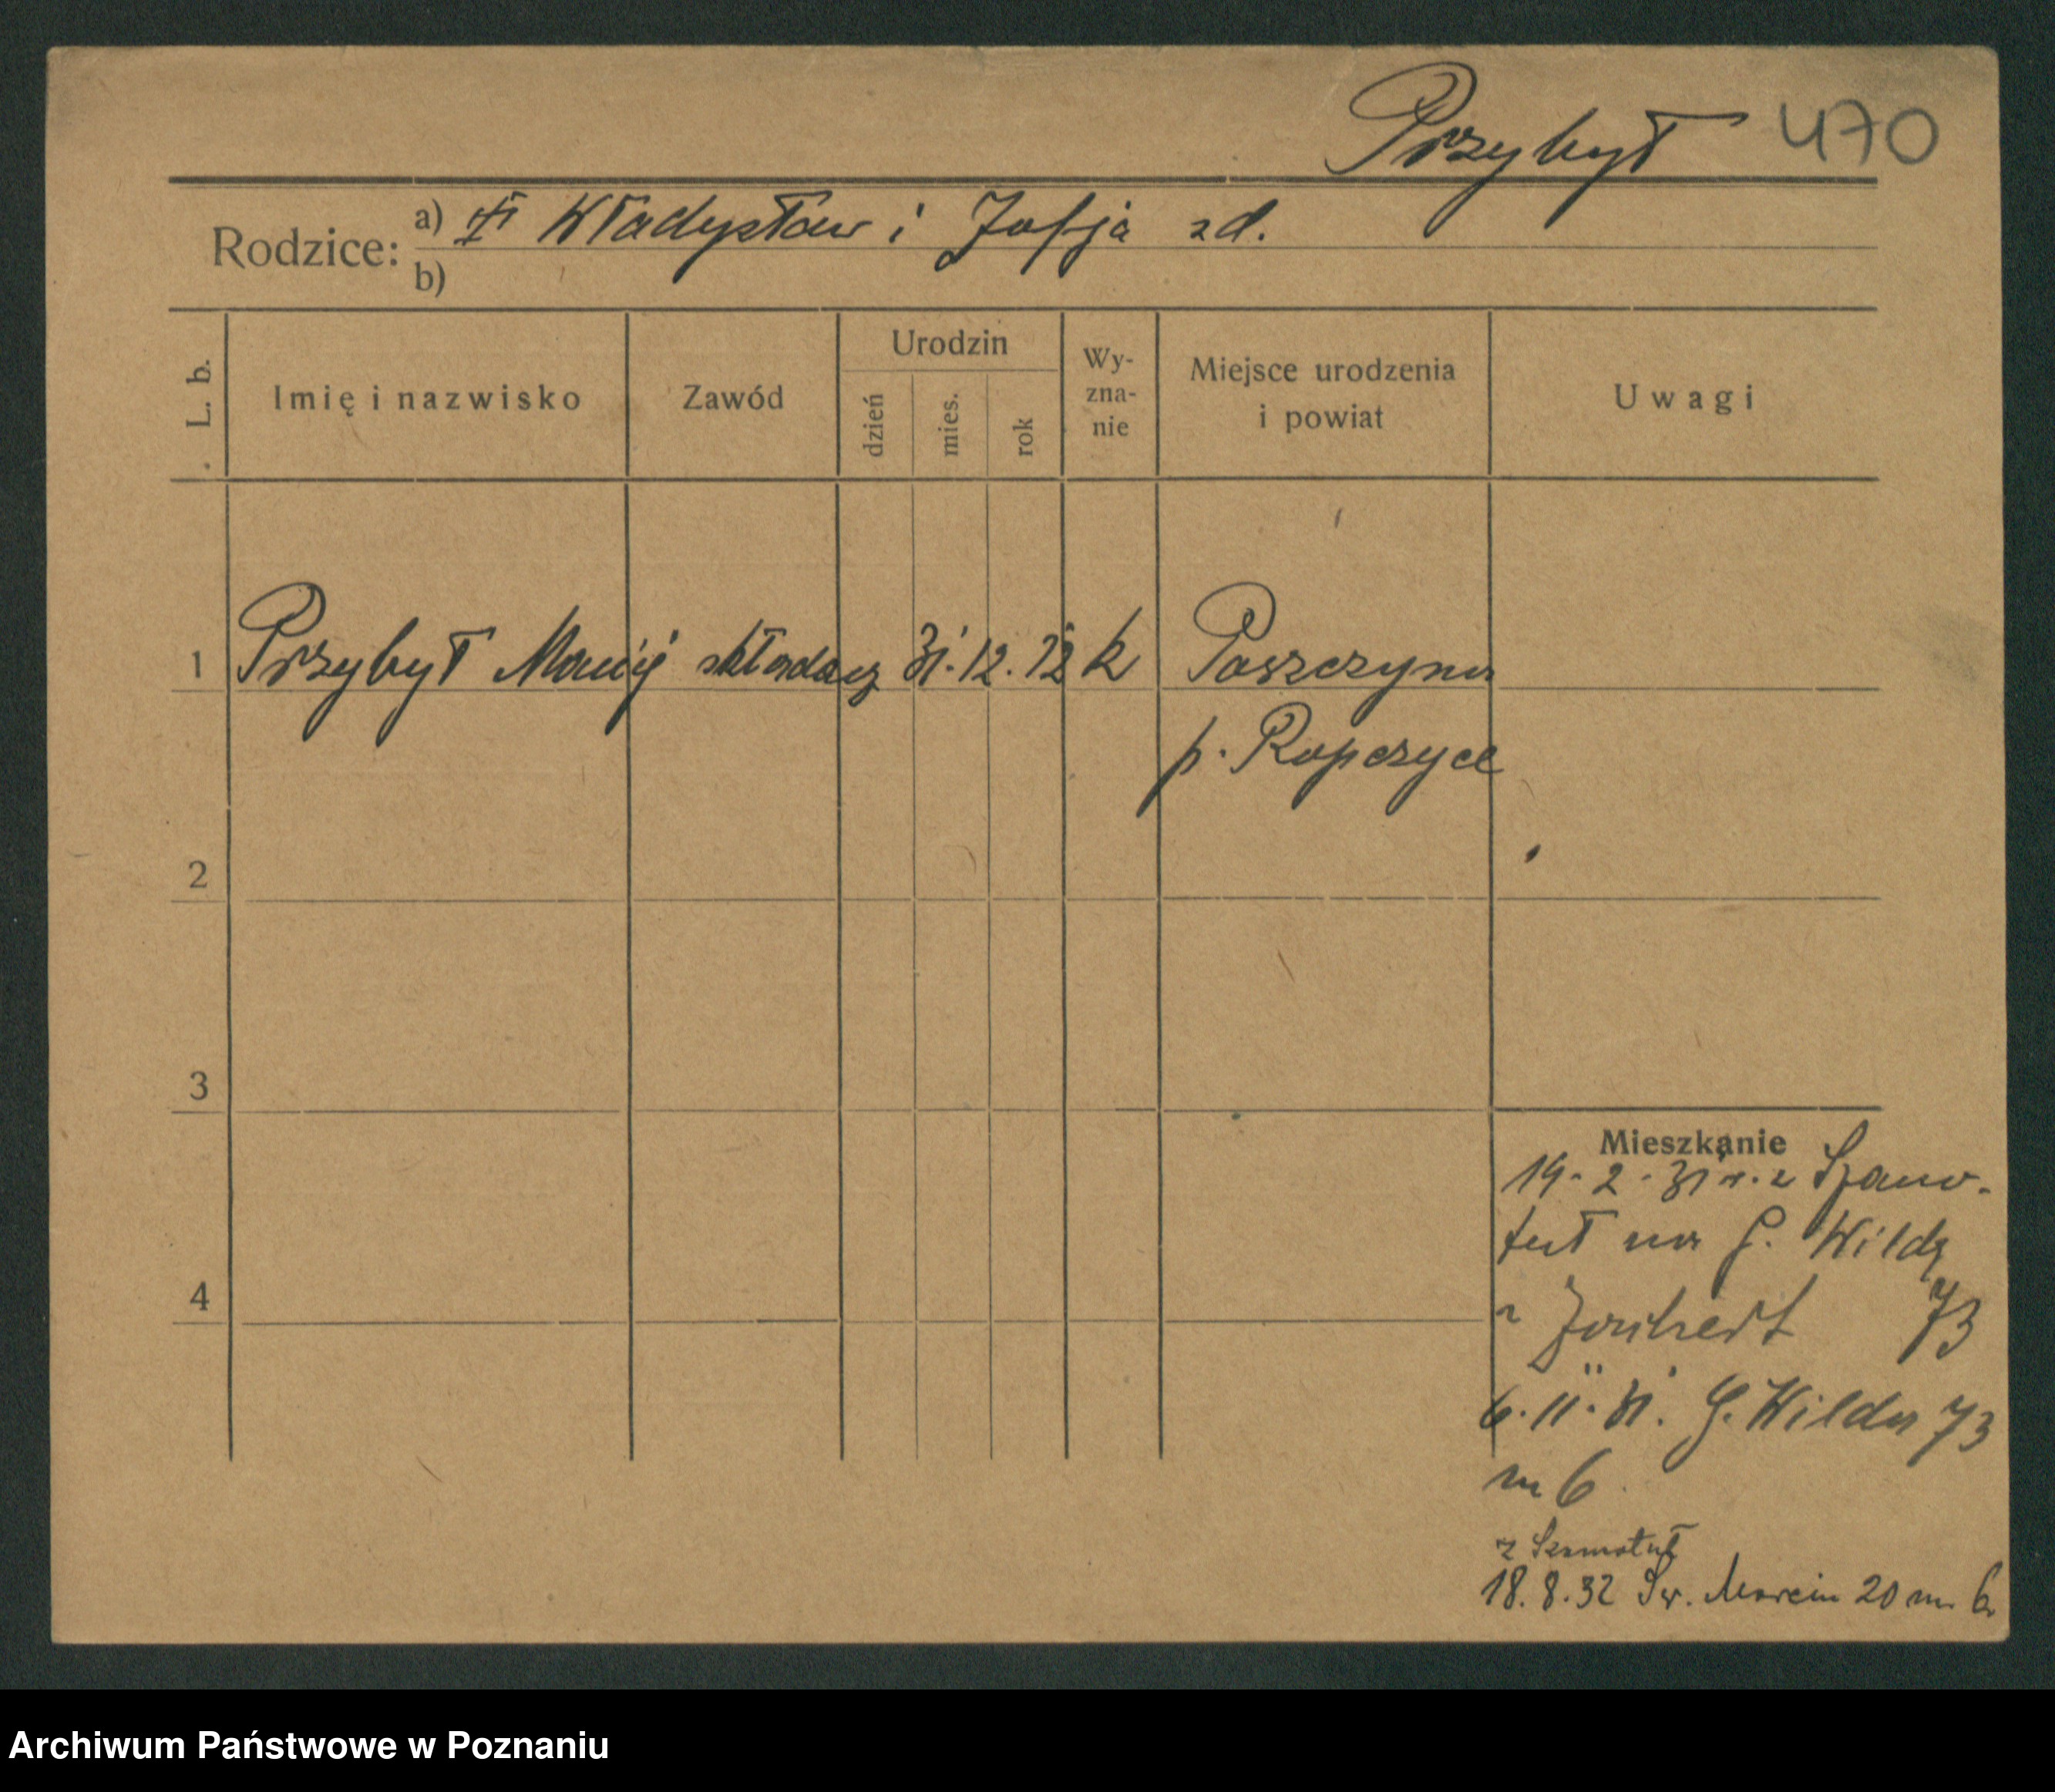 Przybył 470
Rodzice: a) Władysław i Zofja zd.
b)
L. b.
Imię i nazwisko
Zawód
Urodzin
dzień
mies.
rok
Wy-
zna-
nie
Miejsce urodzenia
i powiat
Uwagi
1 Przybył Maciej składacz 31.12.12 k Paszczyna
p. Ropczyce
2
3
Mieszkanie
19.2.31 r. z Szamo-
tuł na G. Wilda
73
4
6.11.31. G. Wilda 73
m 6
z Szamotuł
18.8.32 Św. Marcin 20 m. 6
Archiwum Państwowe w Poznaniu